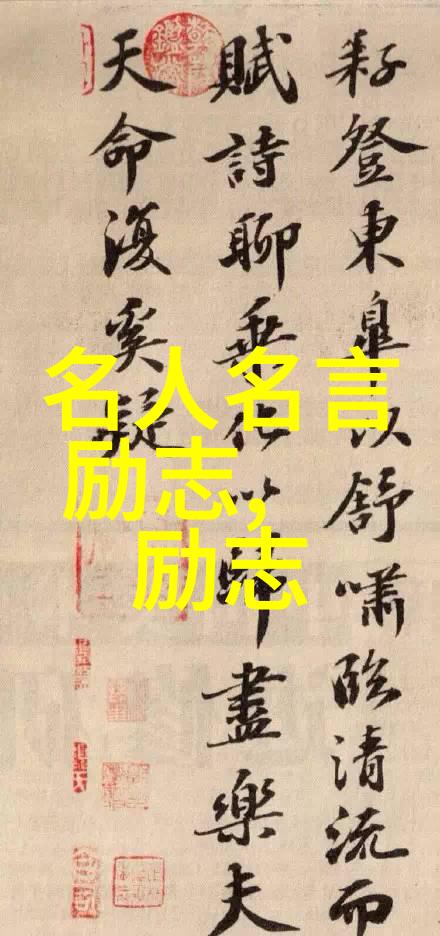 耔登東皋以舒嘯臨清流而
賦詩聊乘化以歸盡樂夫
天命復奚疑
名人名言
励志,
励志